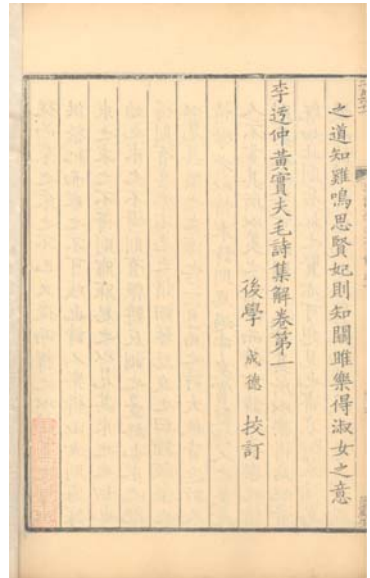 之道知雞鳴思賢妃則知關雎樂得淑女之意
李迃仲黃實夫毛詩集解卷第一
後學 成德 校訂